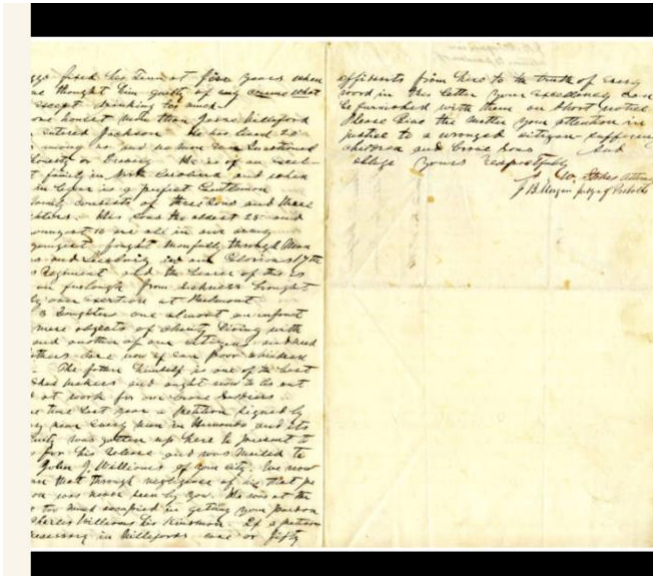 fixed his Time at five years when
thought him guilty of any crime what
except drinking too much
one honest more than Jesse Williford
entered Jackson. He has lived 20
among us and no man ever questioned
honesty or bravery. He is of an excel-
t family in North Carolina and when
is a perfect Gentleman
family consists of three sons and three
daughters. His sons the oldest 25 and
youngest 16 are all in our army
youngest fought manfully through
and in our Glorious 17th
Regiment and the bearer of this is
on furlough from sickness brought
by over exertion at
3 Daughters one almost an infant
mere objects of charity living with
and another of our citizens and need
now if ever poor children
The father himself is one of the best
Shoe makers and ought now to be out
at work for our brave Soldiers
time last year a Petition signed by
near every man in and its
was gotten up here to present to
for his release and was mailed to
John J. Williams of your city. We now
that through negligence of his that
was never seen by you. He was at the
too much occupied in getting your pardon
Charles Williams his Kinsman. If a petition
necessary in Willifords case or fifty
affidavits from here to the truth of every
word in this letter your excellency can
be furnished with them on short notice
Please give the matter your attention in
justice to a wronged citizen - suffering
children and brave sons And
oblige yours respectfully
J B Morgan judge of Probate